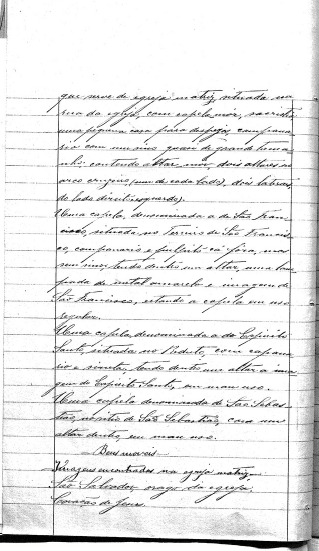 que serve de egreja matriz, situada na
rua da egreja, com capela mór, sacristia
uma piquena casa para despejos, campana-
rio com um sino quasi de grande tama-
nho: contendo altar mór, dois altares no
arco cruzeiro, (um de cada lado), dois lateraes
do lado direito e esquerdo).
Uma capela, denominada a de São Fran-
cisco, situada no Termo de São Francis-
co, campanario e pulpito cá fóra, mas
sem sino, tendo dentro um altar, uma lam-
pada de metal amarelo e imagem de
São Francisco, estando a capela em uso
regular.
Uma capela, denominada a do Espirito
Santo, situada no com campana-
rio e sineta, tendo dentro um altar a ima-
gem do Espirito Santo, em mau uso.
Uma capela denominada de São Sebas-
tião, no sitio de São Sebastião, com um
altar dentro, em mau uso.
— Bens moveis —
Imagens encontradas na egreja matriz —
São Salvador, orago da egreja,
Coração de Jesus.